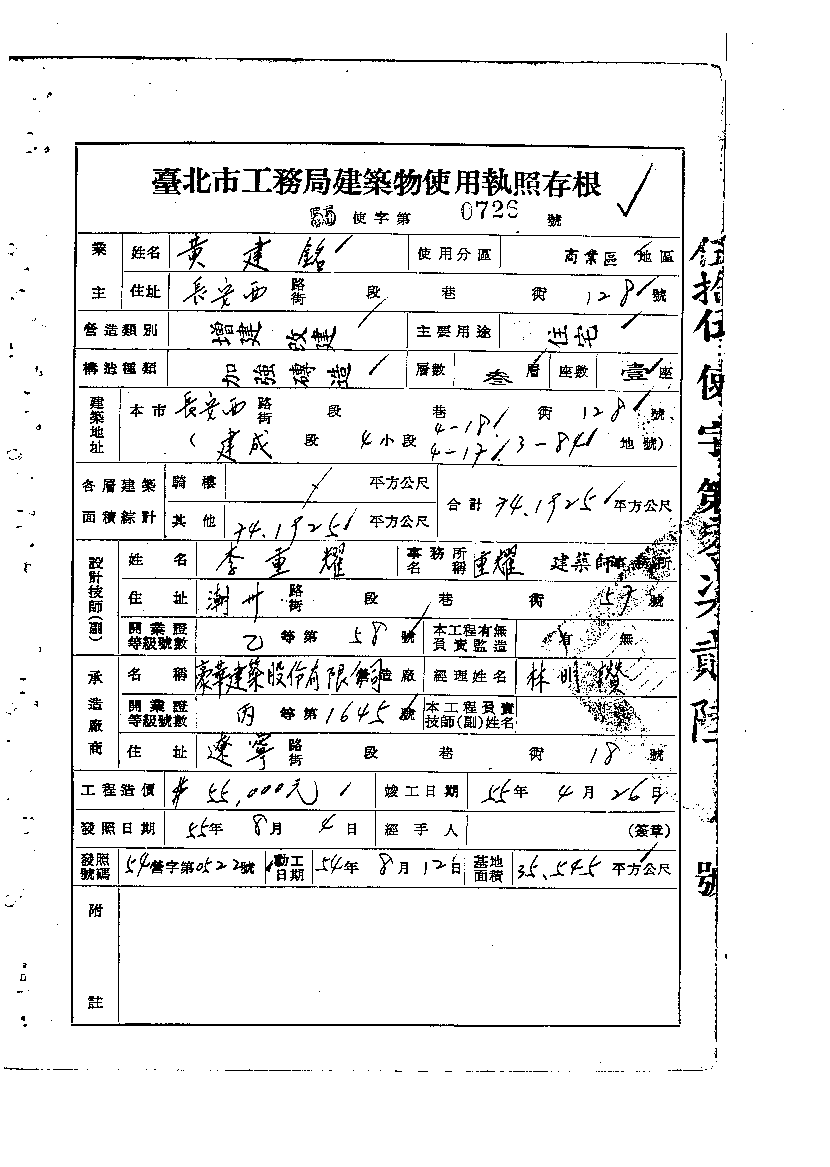 臺北市工務局建築物使用執照存根
55 使字第 0726 號
業主 姓名 黃建銘 使用分區 商業區 地區
住址 長安西 路街 段 巷 街 128 號
營造類別 增建 改建 主要用途 住宅
構造種類 加強磚造 層數 叁層 座數 壹座
建築地址 本市 長安西 路街 段 巷 街 128 號
(建成 段 4 小段 4-18 4-17 3-84 地號)
各層建築面積綜計 騎樓 / 平方公尺 合計 74.1925 平方公尺
其他 74.1925 平方公尺
設計技師(副) 姓名 李重耀 事務所名稱 重耀 建築師事務所
住址 潮州 路街 段 巷 街 57 號
開業證等級號數 乙 等第 58 號 本工程有無負責監造 有 無
承造廠商 名稱 豪華建築股份有限公司 營造廠 經理姓名 林
開業證等級號數 丙 等第 1645 號 本工程負責技師(副)姓名
住址 遼寧 路街 段 巷 街 18 號
工程造價 $55,000元 竣工日期 55年 4月 26日
發照日期 55年 8月 4日 經手人 (簽章)
發照號碼 54營字第0522號 動工日期 54年 8月 12日 基地面積 35.545 平方公尺
附註
伍拾伍使字第零柒貳陸號